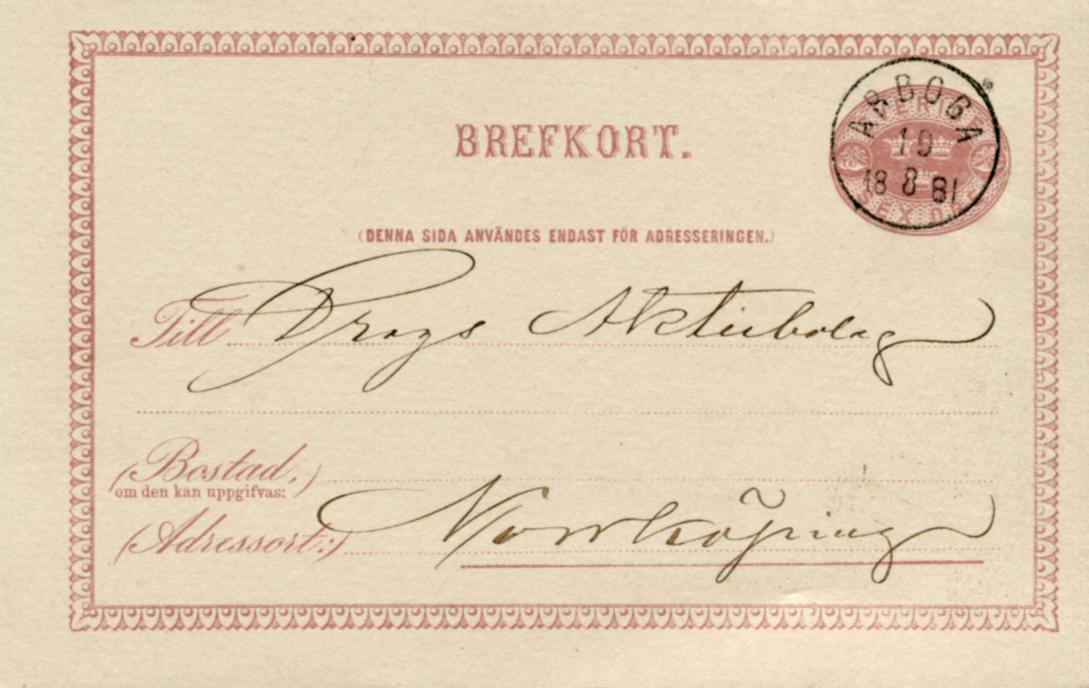 BREFKORT.
SVERIGE
SEX ÖRE
ARBOGA
19
18 8 81
(DENNA SIDA ANVÄNDES ENDAST FÖR ADRESSERINGEN.)
Till Drags Aktiebolag
(Bostad.)
om den kan uppgifvas:
(Adressort:) Norrköping